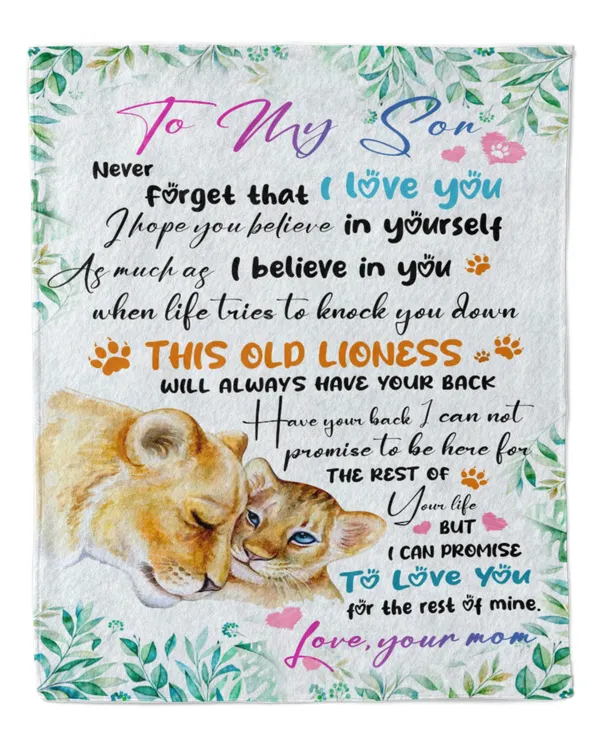 To My Son
Never
forget that I love you
I hope you believe in yourself
As much as I believe in you
when life tries to knock you down
THIS OLD LIONESS
WILL ALWAYS HAVE YOUR BACK
Have your back I can not
promise to be here for
THE REST OF
Your life
BUT
I CAN PROMISE
TO LOVE YOU
for the rest of mine.
Love, your mom